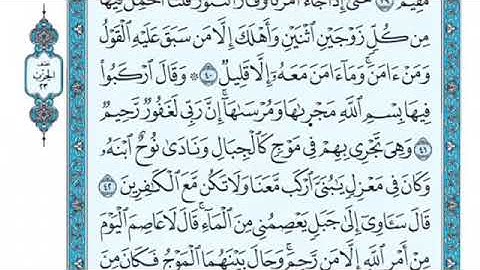 مُّقِيمٌ ۝٣٩ حَتَّىٰٓ إِذَا جَآءَ أَمْرُنَا وَفَارَ ٱلتَّنُّورُ قُلْنَا ٱحْمِلْ فِيهَا
مِن كُلٍّ زَوْجَيْنِ ٱثْنَيْنِ وَأَهْلَكَ إِلَّا مَن سَبَقَ عَلَيْهِ ٱلْقَوْلُ
وَمَنْ ءَامَنَ ۚ وَمَآ ءَامَنَ مَعَهُۥٓ إِلَّا قَلِيلٌ ۝٤٠ ۞ وَقَالَ ٱرْكَبُوا۟
فِيهَا بِسْمِ ٱللَّهِ مَجْر۪ىٰهَا وَمُرْسَىٰهَآ ۚ إِنَّ رَبِّى لَغَفُورٌ رَّحِيمٌ
۝٤١ وَهِىَ تَجْرِى بِهِمْ فِى مَوْجٍ كَٱلْجِبَالِ وَنَادَىٰ نُوحٌ ٱبْنَهُۥ
وَكَانَ فِى مَعْزِلٍ يَـٰبُنَىَّ ٱرْكَب مَّعَنَا وَلَا تَكُن مَّعَ ٱلْكَـٰفِرِينَ
۝٤٢ قَالَ سَـَٔاوِىٓ إِلَىٰ جَبَلٍ يَعْصِمُنِى مِنَ ٱلْمَآءِ ۚ قَالَ لَا عَاصِمَ ٱلْيَوْمَ
مِنْ أَمْرِ ٱللَّهِ إِلَّا مَن رَّحِمَ ۚ وَحَالَ بَيْنَهُمَا ٱلْمَوْجُ فَكَانَ مِنَ
نصف
الحزب
٢٣